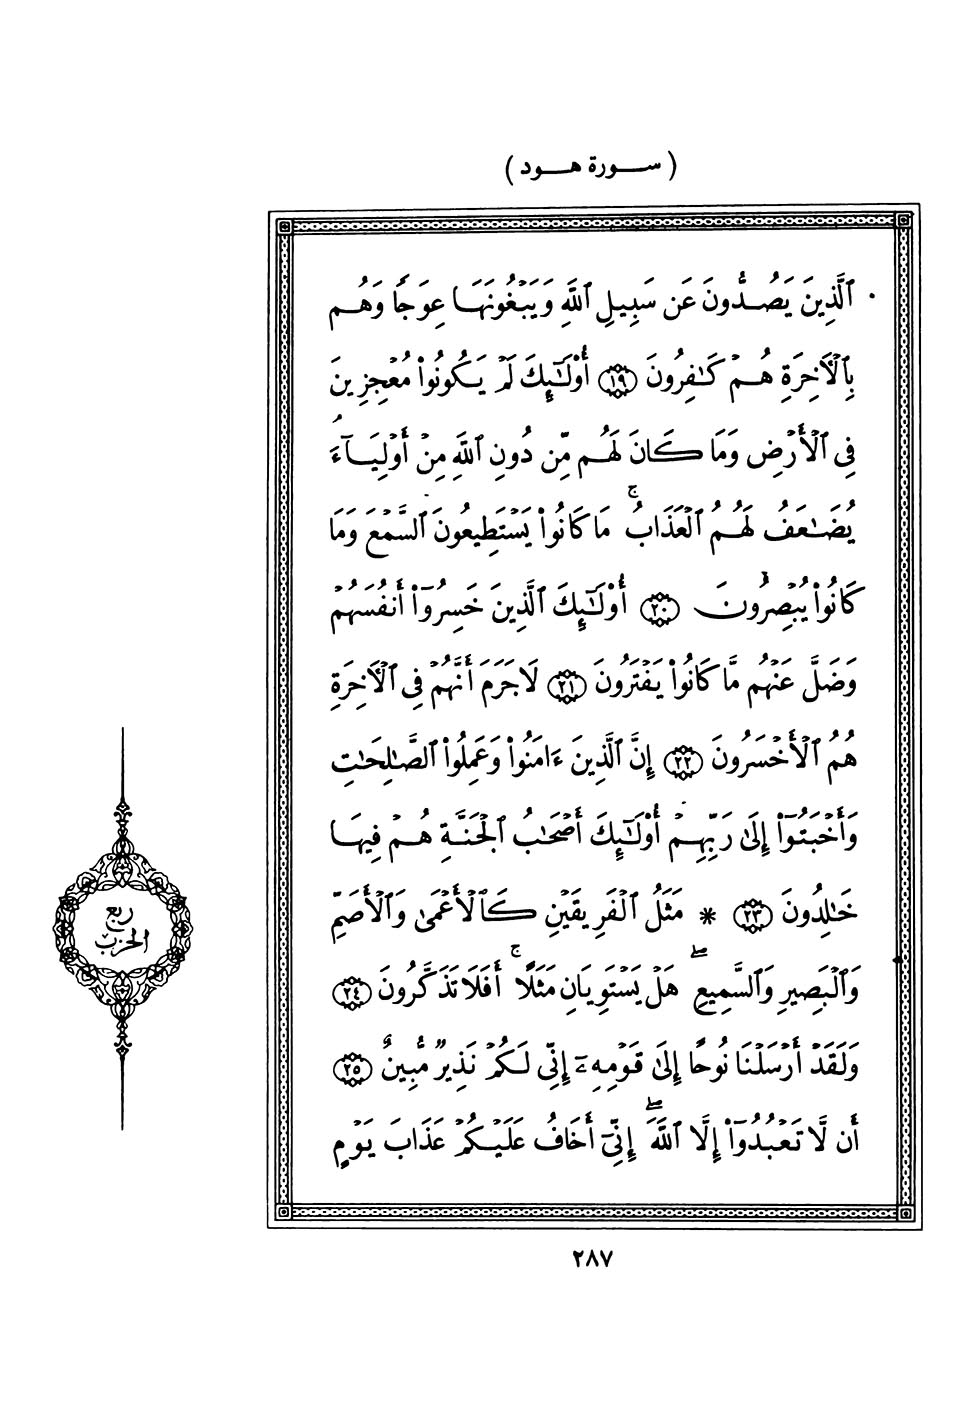 ( سورة هود )
ٱلَّذِينَ يَصُدُّونَ عَن سَبِيلِ ٱللَّهِ وَيَبْغُونَهَا عِوَجًا وَهُم
بِٱلْأَخِرَةِ هُمْ كَـٰفِرُونَ ﴿١٩﴾ أُوْلَـٰٓئِكَ لَمْ يَكُونُواْ مُعْجِزِينَ
فِى ٱلْأَرْضِ وَمَا كَانَ لَهُم مِّن دُونِ ٱللَّهِ مِنْ أَوْلِيَآءَ
يُضَـٰعَفُ لَهُمُ ٱلْعَذَابُ ۚ مَا كَانُواْ يَسْتَطِيعُونَ ٱلسَّمْعَ وَمَا
كَانُواْ يُبْصِرُونَ ﴿٢٠﴾ أُوْلَـٰٓئِكَ ٱلَّذِينَ خَسِرُوٓاْ أَنفُسَهُمْ
وَضَلَّ عَنْهُم مَّا كَانُواْ يَفْتَرُونَ ﴿٢١﴾ لَا جَرَمَ أَنَّهُمْ فِى ٱلْأَخِرَةِ
هُمُ ٱلْأَخْسَرُونَ ﴿٢٢﴾ إِنَّ ٱلَّذِينَ ءَامَنُواْ وَعَمِلُواْ ٱلصَّـٰلِحَـٰتِ
وَأَخْبَتُوٓاْ إِلَىٰ رَبِّهِمْ أُوْلَـٰٓئِكَ أَصْحَـٰبُ ٱلْجَنَّةِ هُمْ فِيهَا
خَـٰلِدُونَ ﴿٢٣﴾ * مَثَلُ ٱلْفَرِيقَيْنِ كَٱلْأَعْمَىٰ وَٱلْأَصَمِّ
وَٱلْبَصِيرِ وَٱلسَّمِيعِ ۖ هَلْ يَسْتَوِيَانِ مَثَلًا ۚ أَفَلَا تَذَكَّرُونَ ﴿٢٤﴾
وَلَقَدْ أَرْسَلْنَا نُوحًا إِلَىٰ قَوْمِهِۦٓ إِنِّى لَكُمْ نَذِيرٌ مُّبِينٌ ﴿٢٥﴾
أَن لَّا تَعْبُدُوٓاْ إِلَّا ٱللَّهَ ۖ إِنِّىٓ أَخَافُ عَلَيْكُمْ عَذَابَ يَوْمٍ
ربع
الحزب
٢٨٧